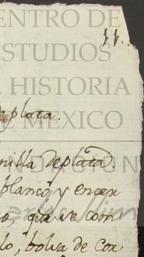 CENTRO DE
11.
ESTUDIOS
HISTORIA
plata.
DE MEXICO
nilla de plata
blanco y encar
o, que se com
lo, bolsa de Cor